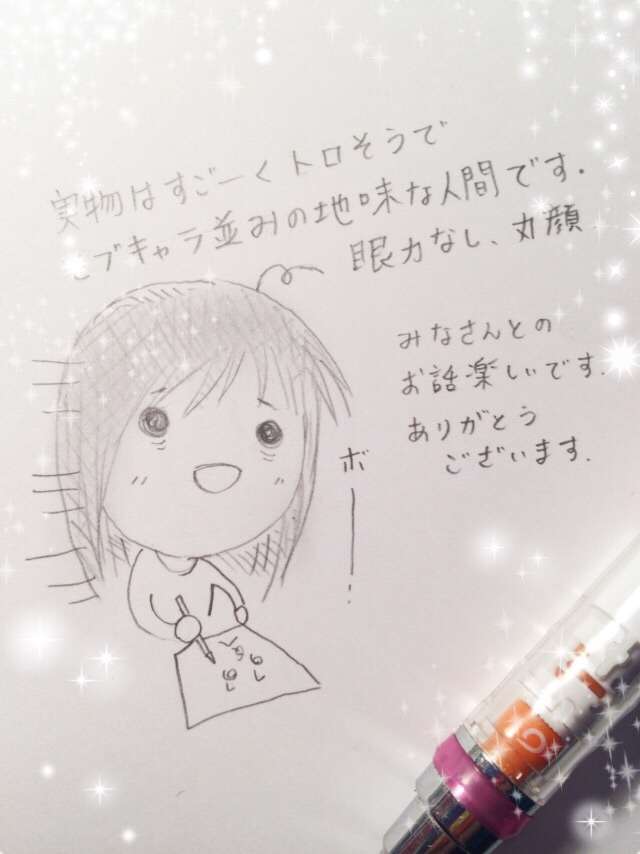 実物はすごーくトロそうで
モブキャラ並みの地味な人間です.
眼力なし、丸顔
みなさんとの
お話楽しいです.
ありがとう
ございます.
ボーー…